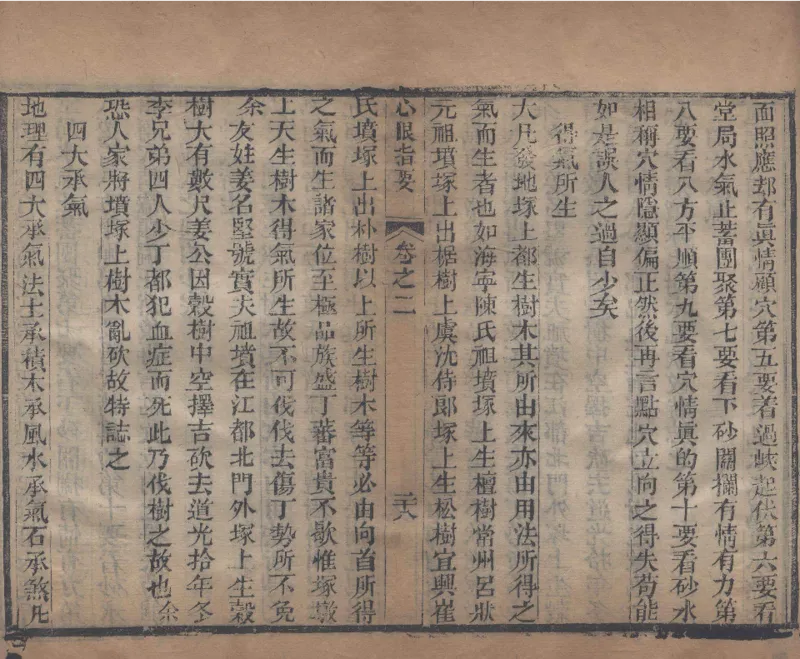 面照應却有眞情顧穴第五要看過峽起伏第六要看
堂局水氣止蓄團聚第七要看下砂關攔有情有力第
八要看八方平順第九要看穴情眞的第十要看砂水
相稱穴情隱顯偏正然後再言點穴立向之得失苟能
如是誤人之過自少矣
得氣所生
大凡發地塚上都生樹木其所由來亦由用法所得之
氣而生者也如海寧陳氏祖墳塚上生檀樹常州呂狀
元祖墳塚上出椐樹上虞沈侍郎塚上生松樹宜興崔
心眼指要
卷之二
二十八
氏墳塚上出朴樹以上所生樹木等等必由向首所得
之氣而生諸家位至極品族盛丁蕃富貴不歇惟塚墩
上天生樹木得氣所生故不可伐伐去傷丁勢所不免
余友姓姜名堅號實夫祖墳在江都北門外塚上生穀
樹大有數尺姜公因穀樹中空擇吉砍去道光拾年冬
季兄弟四人少丁都犯血症而死此乃伐樹之故也余
恐人家將墳塚上樹木亂砍故特誌之
四大承氣
地理有四大承氣法土承積木承風水承氣石承煞凡